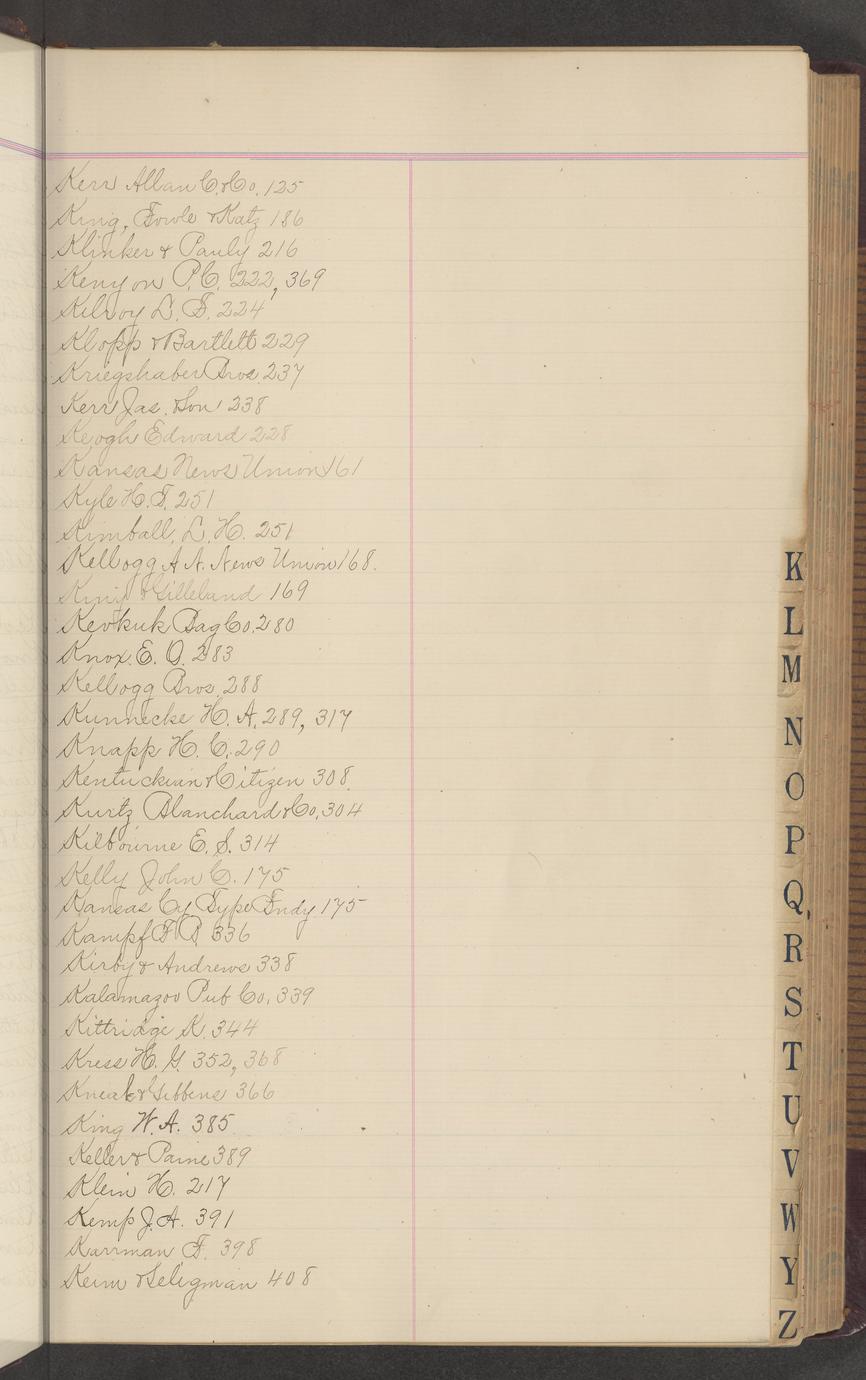 Kerr Allan C. & Co. 125
King, Fowle & Katz 186
Klinker & Pauly 216
Kenyon P. C. 222, 369
Kilroy L. F. 224
Klopp & Bartlett 229
Kriegshaber Bros. 237
Kerr Jas. & Son 238
Keogh Edward 228
Kansas News Union 161
Kyle H. F. 251
Kimball, L. H. 251
Kellogg A. N. News Union 168.
King & Gilleland 169
Keokuk Bag Co. 280
Knox. E. O. 283
Kellogg Bros. 288
Kunnecke H. A. 289, 317
Knapp H. C. 290
Kentuckian & Citizen 308.
Kurtz Blanchard & Co. 304
Kilbourne E. S. 314
Kelly John C. 175
Kansas Cy Type Fndy 175
Kampf F. P. 336
Kirby & Andrews 338
Kalamazoo Pub Co. 339
Kittridge K. 344
Kress H. G. 352, 368
& Gibbens 366
King W. A. 385
Keller & Paine 389
Klein H. 217
Kemp J. A. 391
Karrman F. 398
Keim & Seligman 408
K
L
M
N
O
P
Q
R
S
T
U
V
W
Y
Z